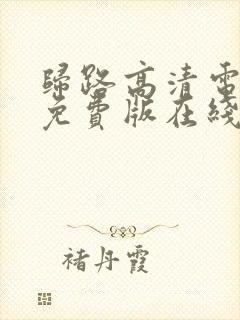 歸路高清電
免費版在綫
褚丹霞